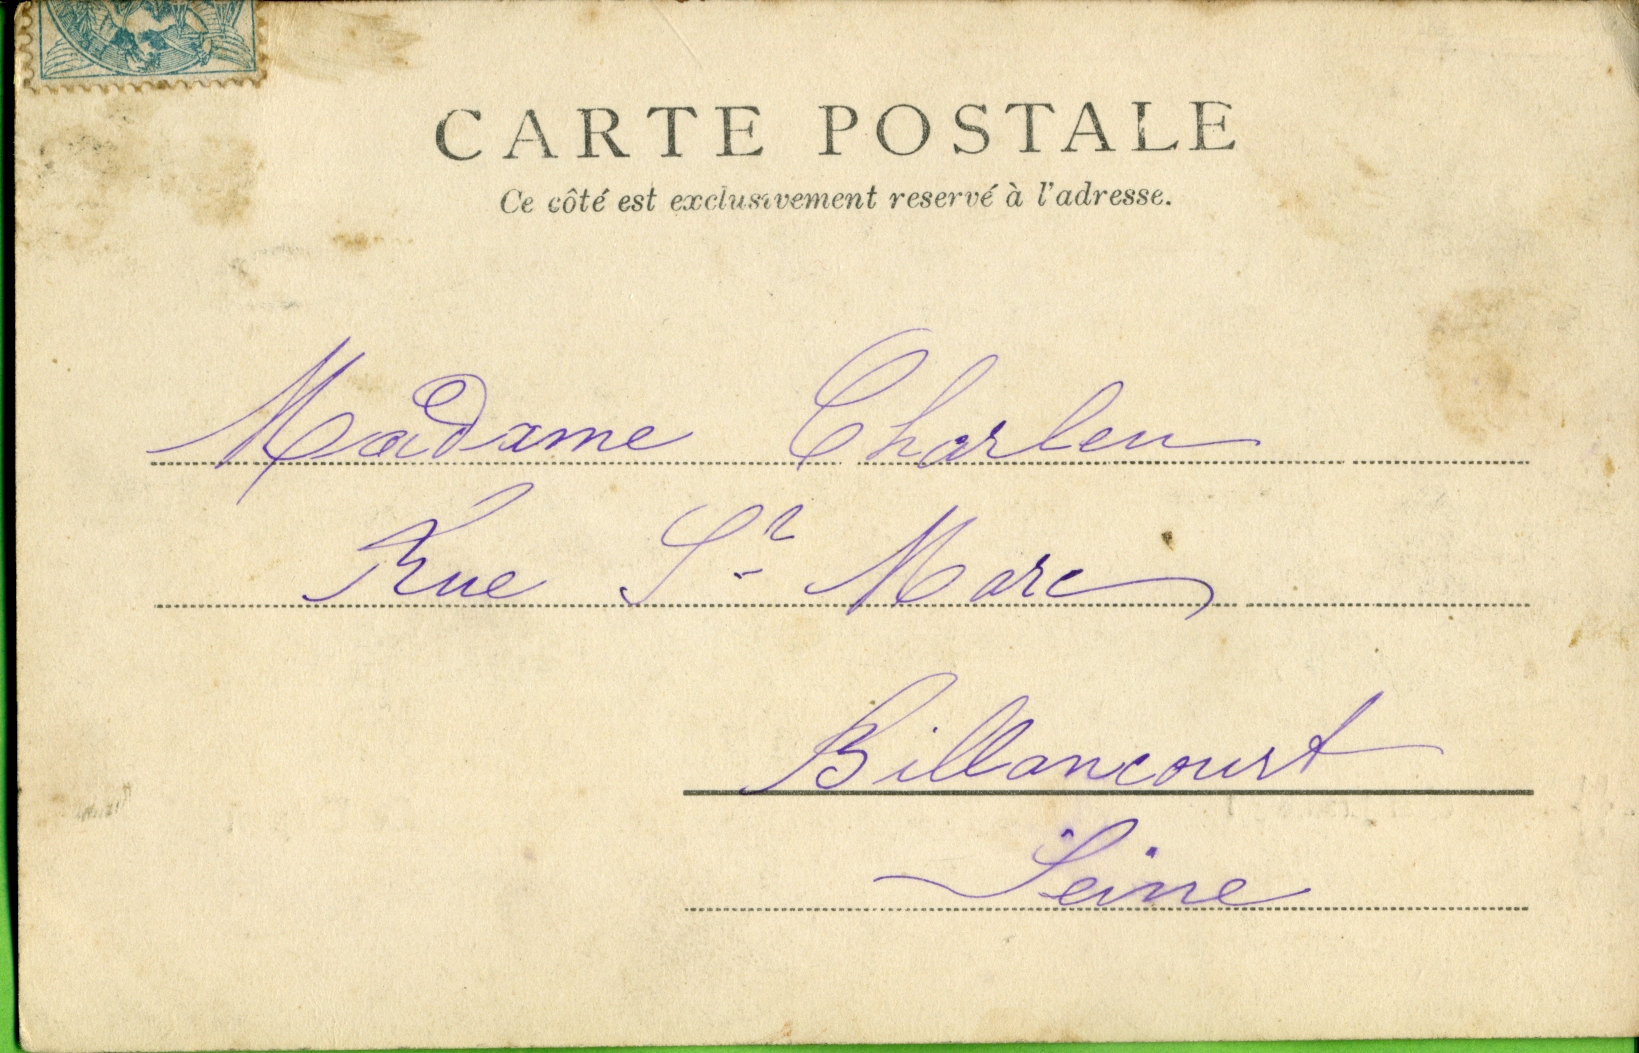 CARTE POSTALE
Ce côté est exclusivement reservé à l'adresse.
Madame Charlen
Rue St Marc
Billancourt
Seine